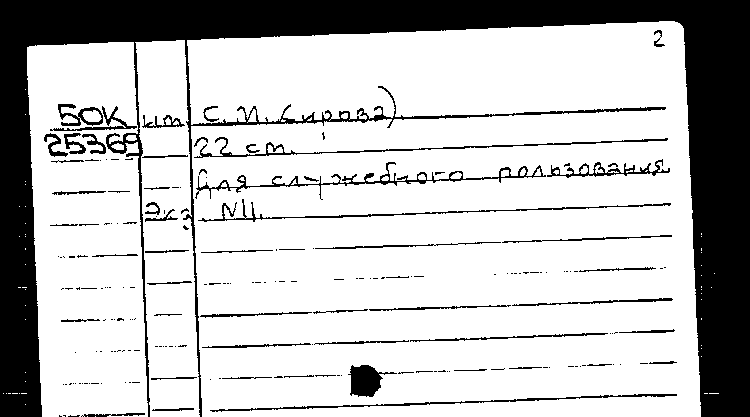 2
50К им. С. М. Кирова).
25369 22 ст.
Для служебного пользования
Экз. N11.